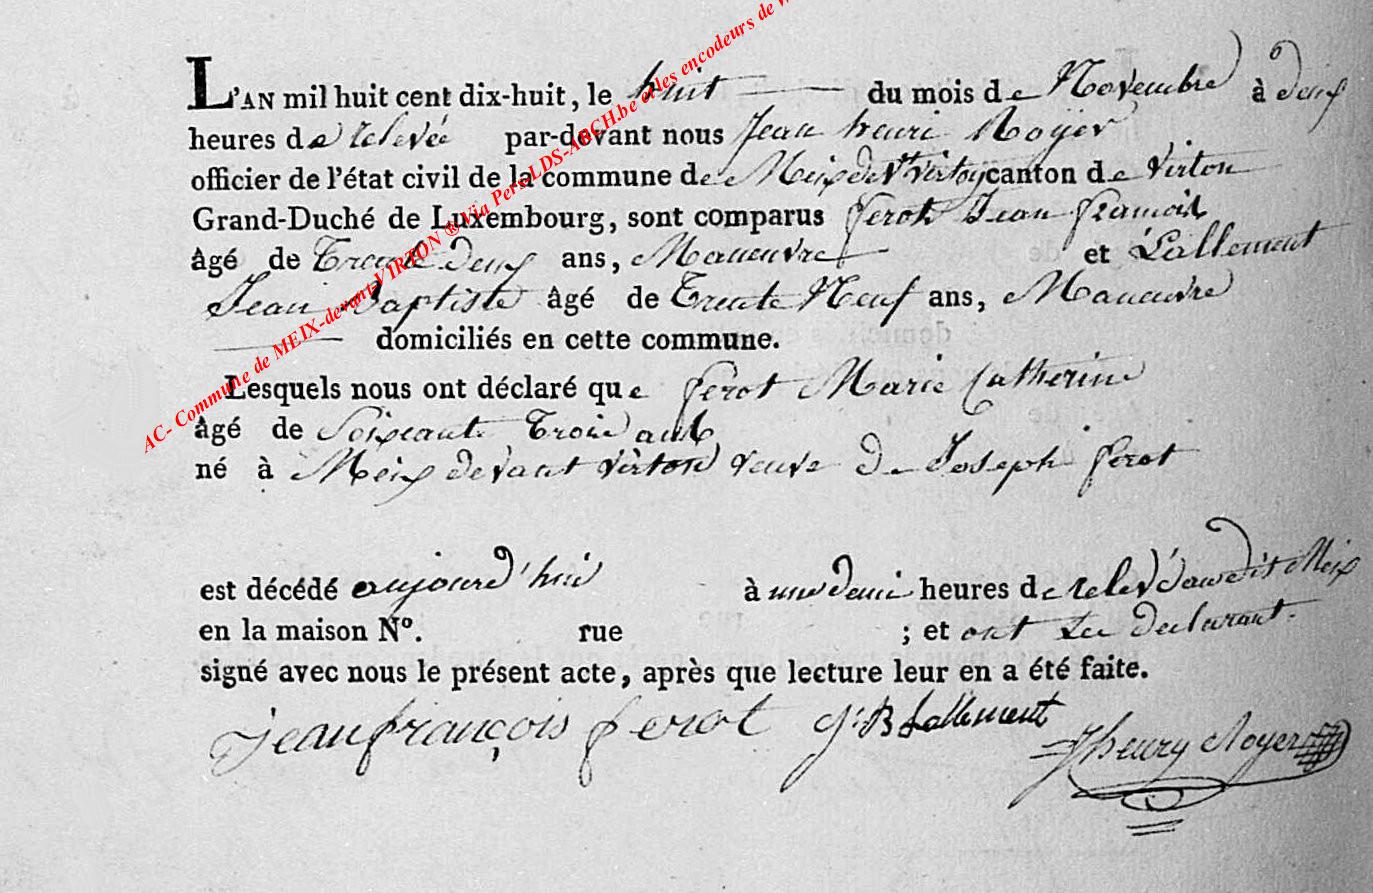 L'AN mil huit cent dix-huit, le huit du mois de Novembre à deux
heures de relevée par-devant nous Jean henri Noyer
officier de l'état civil de la commune de Meix devt virton canton de virton
Grand-Duché de Luxembourg, sont comparus ferot Jean francois
âgé de Trente deux ans, Maneuvre et Lallement
Jean Baptiste âgé de Trente Neuf ans, Maneuvre
domiciliés en cette commune.
Lesquels nous ont déclaré que ferot Marie Catherine
âgé de Soixante Trois ans
né à Meix devant virton veuve de Joseph ferot
est décédé aujourd'hui à une demi heures de relevé audit Meix
en la maison N°. rue ; et ont Les declarant
signé avec nous le présent acte, après que lecture leur en a été faite.
jean françois ferot J: B Lallement Jhenry Noyer
AC- Commune de MEIX-devant-VIRTON ® Via Pers-LDS-ARCH.be et les encodeurs de